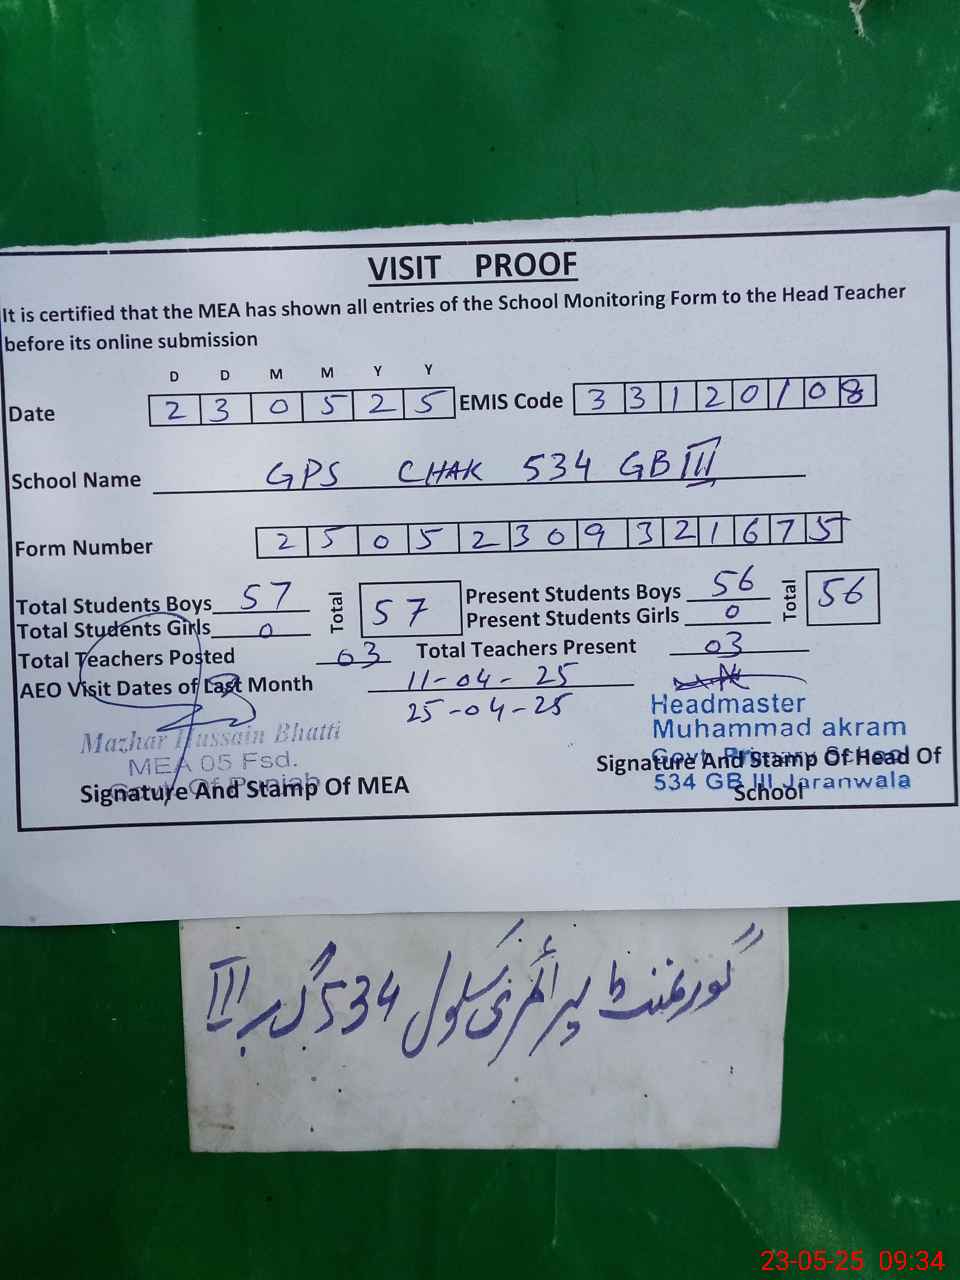 VISIT PROOF
It is certified that the MEA has shown all entries of the School Monitoring Form to the Head Teacher
before its online submission
D D M M Y Y
Date 2 3 0 5 2 5 EMIS Code 3 3 1 2 0 1 0 8
School Name GPS CHAK 534 GB III
Form Number 2 5 0 5 2 3 0 9 3 2 1 6 7 5
Total Students Boys 57 Total 57 Present Students Boys 56 Total 56
Total Students Girls 0 Present Students Girls 0
Total Teachers Posted 03 Total Teachers Present 03
AEO Visit Dates of Last Month 11-04-25
25-04-25
Mazhar Hussain Bhatti
MEA 05 Fsd.
Govt. Of Punjab
Signature And Stamp Of MEA
Headmaster
Muhammad akram
Govt. Primary School
534 GB III Jaranwala
Signature And Stamp Of Head Of
School
گورنمنٹ پرائمری سکول 534 گ ب III
23-05-25 09:34